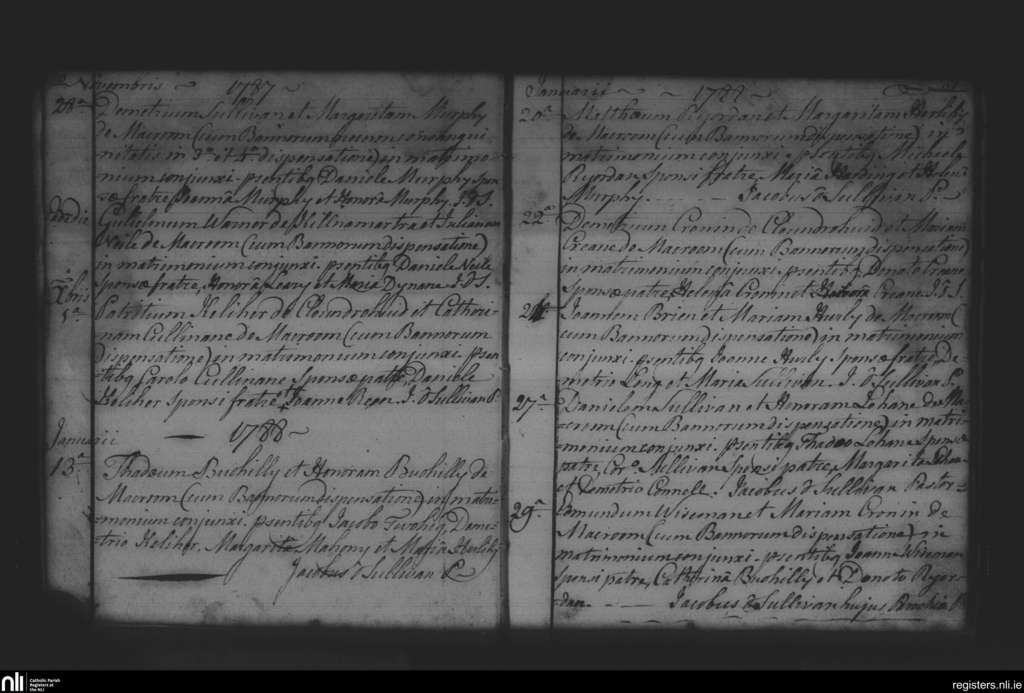 Novembris 1787
28a Demetrium Sullivan et Margaritam Murphy
de Macroom (cum Bannorum necnon consangui-
nitatis in 3o et 4o dispensatione) in matrimo-
nium conjunxi. psentibq Daniele Murphy spon-
sæ fratre, Joannâ Murphy et Honorâ Murphy. J. O S.
Eodem die Gulielmum Warner de Killnamartra et Julianam
Neile de Macroom (cum Bannorum dispensatione)
in matrimonium conjunxi. psentibq Daniele Neile
sponsæ fratre, Honorâ Leary et Maria Dynane J. O S.
Xbris
5a Patritium Keliher de Cloundrohud et Catheri-
nam Cullinane de Macroom (cum Bannorum
dispensatione) in matrimonium conjunxi. psen-
tibq Carolo Cullinane sponsæ patre, Daniele
Keliher sponsi fratre et Joanne J. O Sullivan P.
Januarii 1788
13a Thadæum Buohilly et Honoram Buohilly de
Macroom (cum Bannorum dispensatione) in matri-
monium conjunxi. psentibq Jacobo Twohig, Deme-
trio Keliher, Margarita Mahony et Maria Herlihy
Jacobus O Sullivan P.
Januarii 1788
20a Matthæum Ryordan et Margaritam Herlihy
de Macroom (cum Bannorum dispensatione) in
matrimonium conjunxi. psentibq Michaele
Ryordan sponsi fratre, Mariâ Harding et Helenâ
Murphy. Jacobus O Sullivan P.
22a Demetrium Cronin de Cloundrohud et Mariam
Creane de Macroom (cum Bannorum dispensatione)
in matrimonium conjunxi. psentibq Donato Creane
sponsæ patre, Helenâ Cronin et Creane J. O S.
24a Joannem Brien et Mariam Hurly de Macroom (
cum Bannorum dispensatione) in matrimonium
conjunxi. psentibq Joanne Hurly sponsæ fratre, De-
metrio Long et Maria Sullivan. J. O Sullivan P.
27a Danielem Sullivan et Honoram Lehane de Ma-
croom (cum Bannorum dispensatione) in matri-
monium conjunxi. psentibq Thadæo Lehane sponsæ
patre, Sullivan sponsi patre, Margarita Lehane
et Demetrio Connell. Jacobus O Sullivan Pastor
29a Edmundum Wiseman et Mariam Cronin de
Macroom (cum Bannorum dispensatione) in
matrimonium conjunxi. psentibq Joanne Wiseman
sponsi patre, Catherinâ Buohilly et Donato Ryor-
dan. Jacobus O Sullivan hujus Parochiæ P.
nli
Catholic Parish
Registers at
the NLI
registers.nli.ie